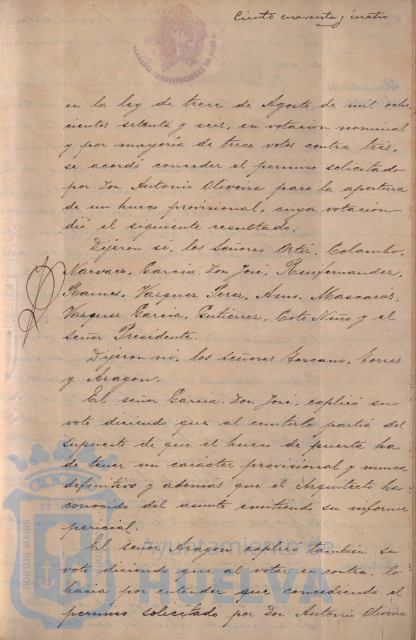 Ciento cuarenta y cuatro
en la ley de trece de Agosto de mil ocho
cientos setenta y seis, en votacion nominal
y por mayoría de trece votos contra tres,
se acordó conceder el permiso solicitado
por Don Antonio Oliveira para la apertura
de un hueco provisional, cuya votacion
dió el siguiente resultado:
Dijeron si, los Señores Ortiz, Colombo,
Narvaez, García Don José, Fernandez,
Ramos, Vazquez Perez, Amo, Mascarós,
Vazquez García, Gutierrez, Coto Niño y el
Señor Presidente.
Dijeron nó, los señores Toscano, Torres
y Aragon.
El señor García Don José, esplicó su
voto diciendo que al emitirlo partia del
supuesto de que el hueco de puerta ha
de tener un carácter provisional y nunca
definitivo y además que el Arquitecto ha
conocido del asunto emitiendo su informe
pericial.
El señor Aragon esplicó tambien su
voto diciendo que al votar en contra, lo
hacia por entender que concediendo el
permiso solicitado por Don Antonio Oliveira
PORTUS MARIS ET
Ayuntamiento de
HUELVA